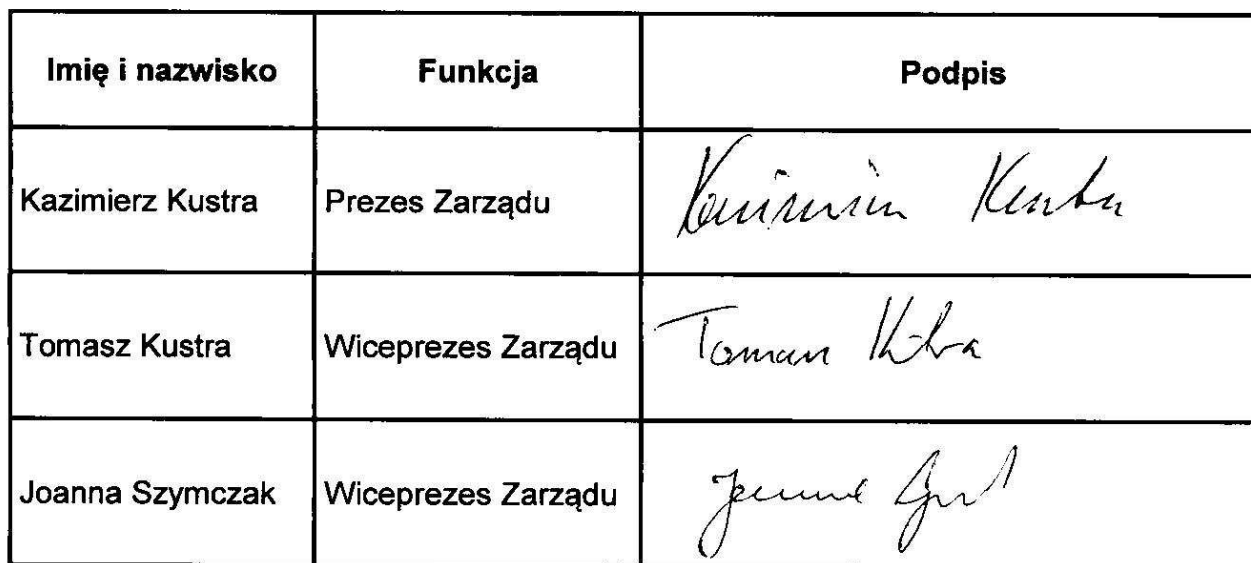 Imię i nazwisko Funkcja Podpis
Kazimierz Kustra Prezes Zarządu Kazimierz Kustra
Tomasz Kustra Wiceprezes Zarządu Tomasz Kustra
Joanna Szymczak Wiceprezes Zarządu Joanna